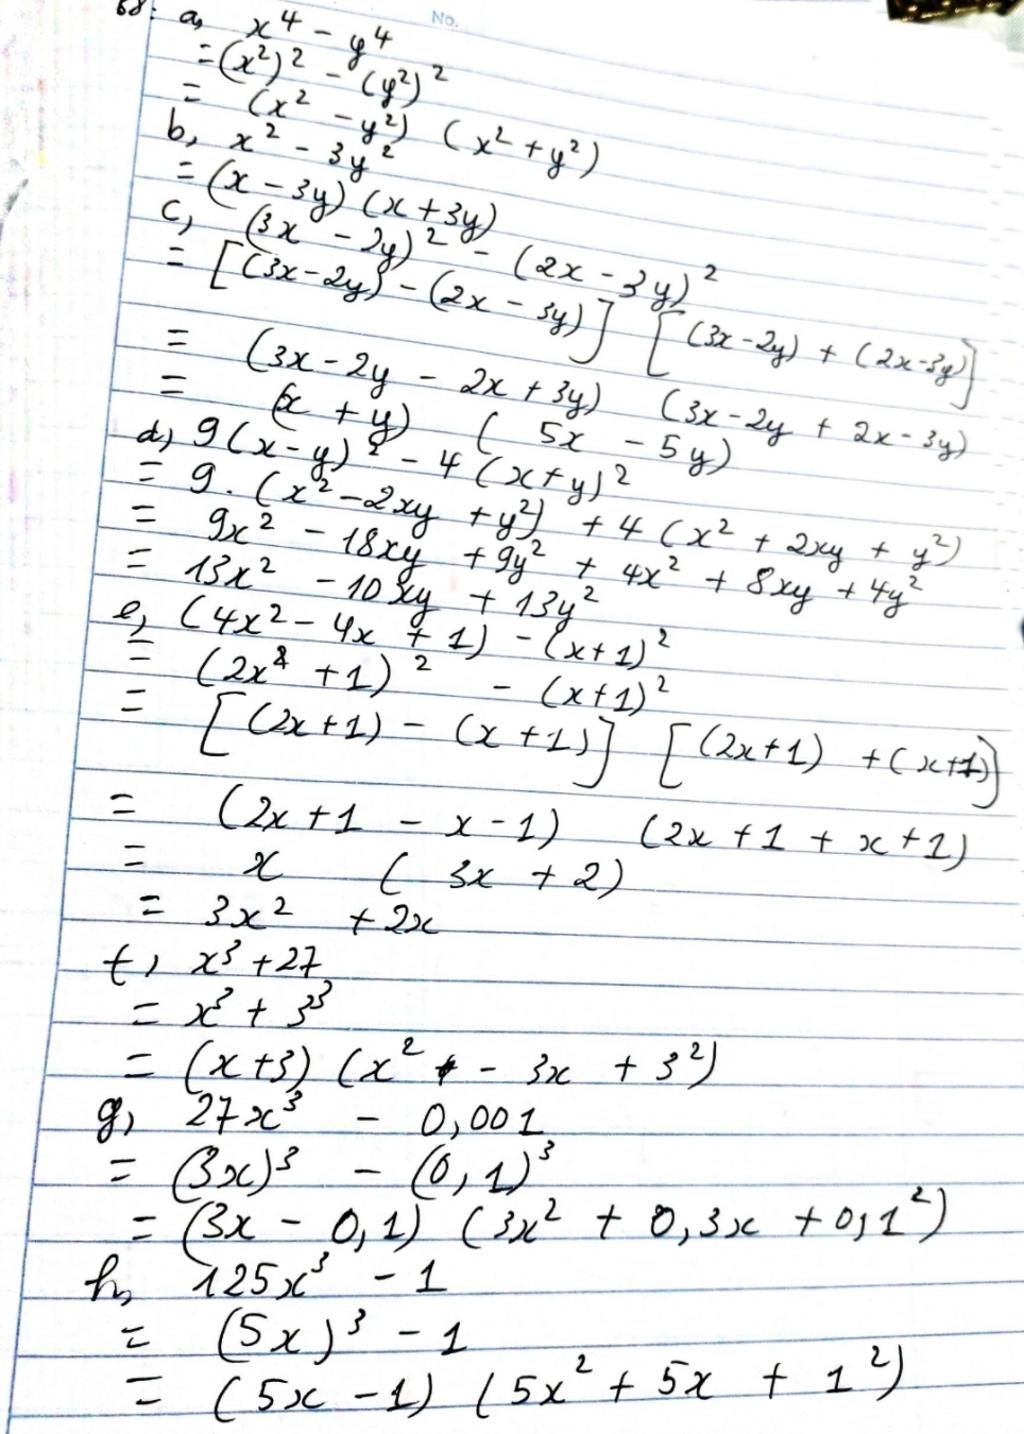 No.
68: a, x⁴ - y⁴
= (x²)² - (y²)²
= (x² - y²) (x² + y²)
b, x² - 3y²
= (x - 3y) (x + 3y)
c, (3x - 2y)² - (2x - 3y)²
= [(3x - 2y) - (2x - 3y)] [(3x - 2y) + (2x - 3y)]
= (3x - 2y - 2x + 3y) (3x - 2y + 2x - 3y)
= (x + y) (5x - 5y)
d, 9(x - y)² - 4(x + y)²
= 9. (x² - 2xy + y²) + 4 (x² + 2xy + y²)
= 9x² - 18xy + 9y² + 4x² + 8xy + 4y²
= 13x² - 10xy + 13y²
e, (4x² - 4x + 1) - (x + 1)²
= (2x + 1)² - (x + 1)²
= [(2x + 1) - (x + 1)] [(2x + 1) + (x + 1)]
= (2x + 1 - x - 1) (2x + 1 + x + 1)
= x (3x + 2)
= 3x² + 2x
f, x³ + 27
= x³ + 3³
= (x + 3) (x² - 3x + 3²)
g, 27x³ - 0,001
= (3x)³ - (0,1)³
= (3x - 0,1) (3x² + 0,3x + 0,1²)
h, 125x³ - 1
= (5x)³ - 1
= (5x - 1) (5x² + 5x + 1²)